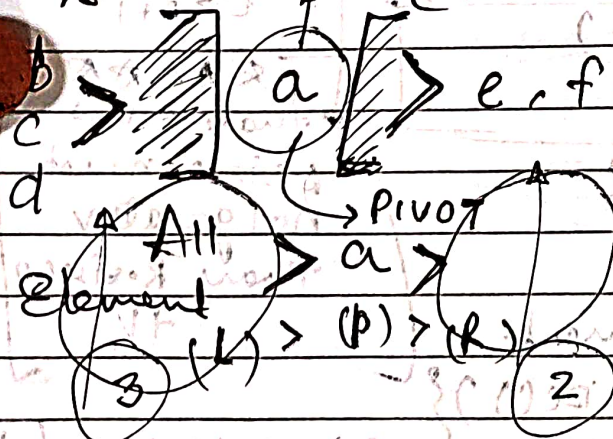 b
c > a > e, f
d
PIVOT
All > a >
Element
(L) > (P) > (R)
3 2